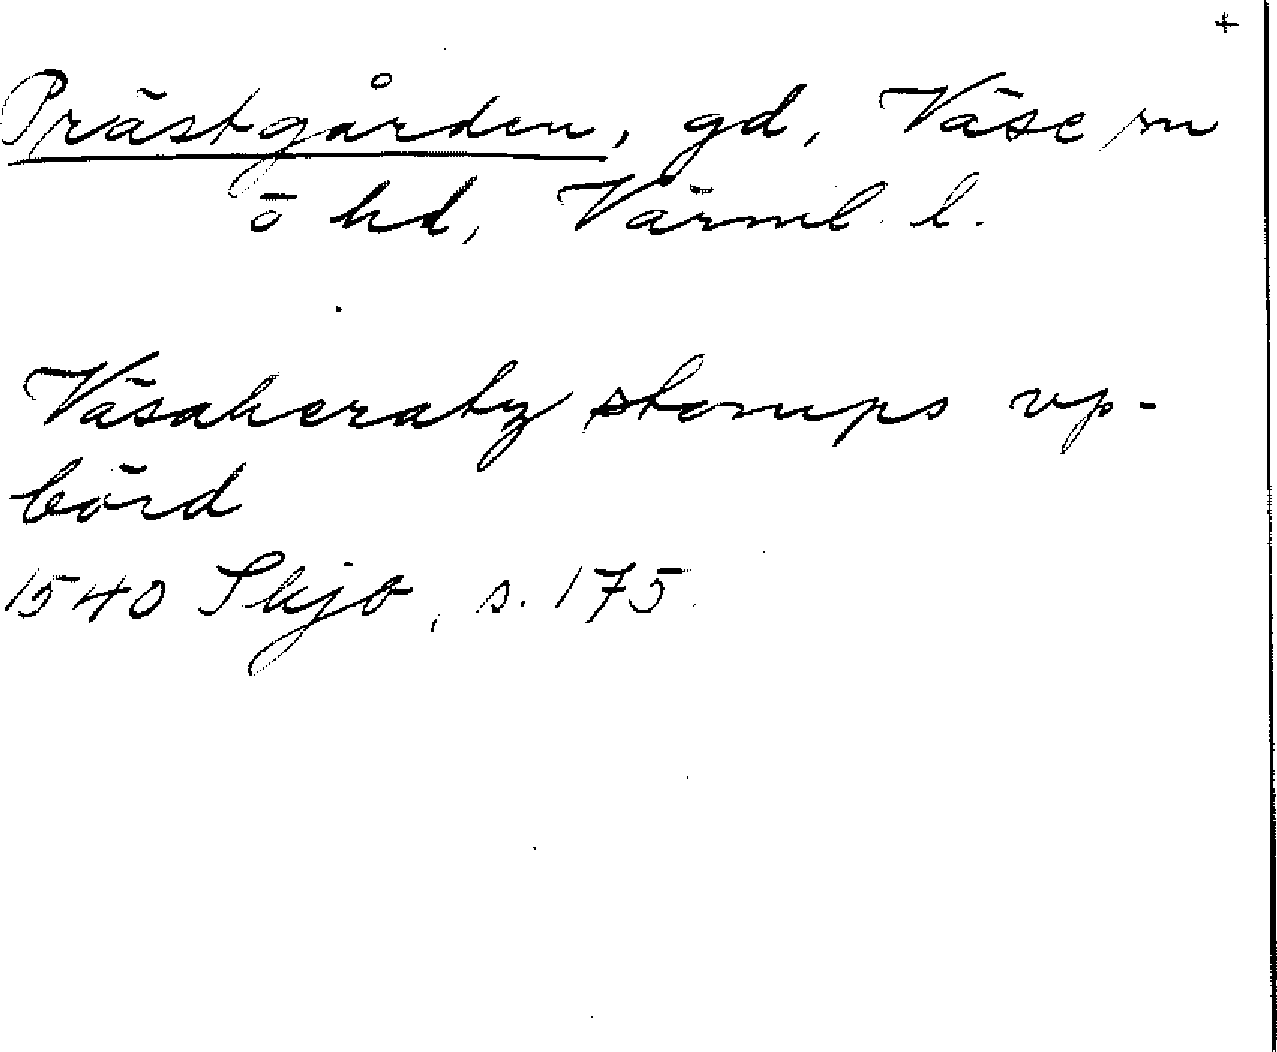 +
Prästgården, gd, Väse sn
ö hd, Värml. l.
Väsaheratz stomps vp-
börd
1540 Skjb, s. 175.